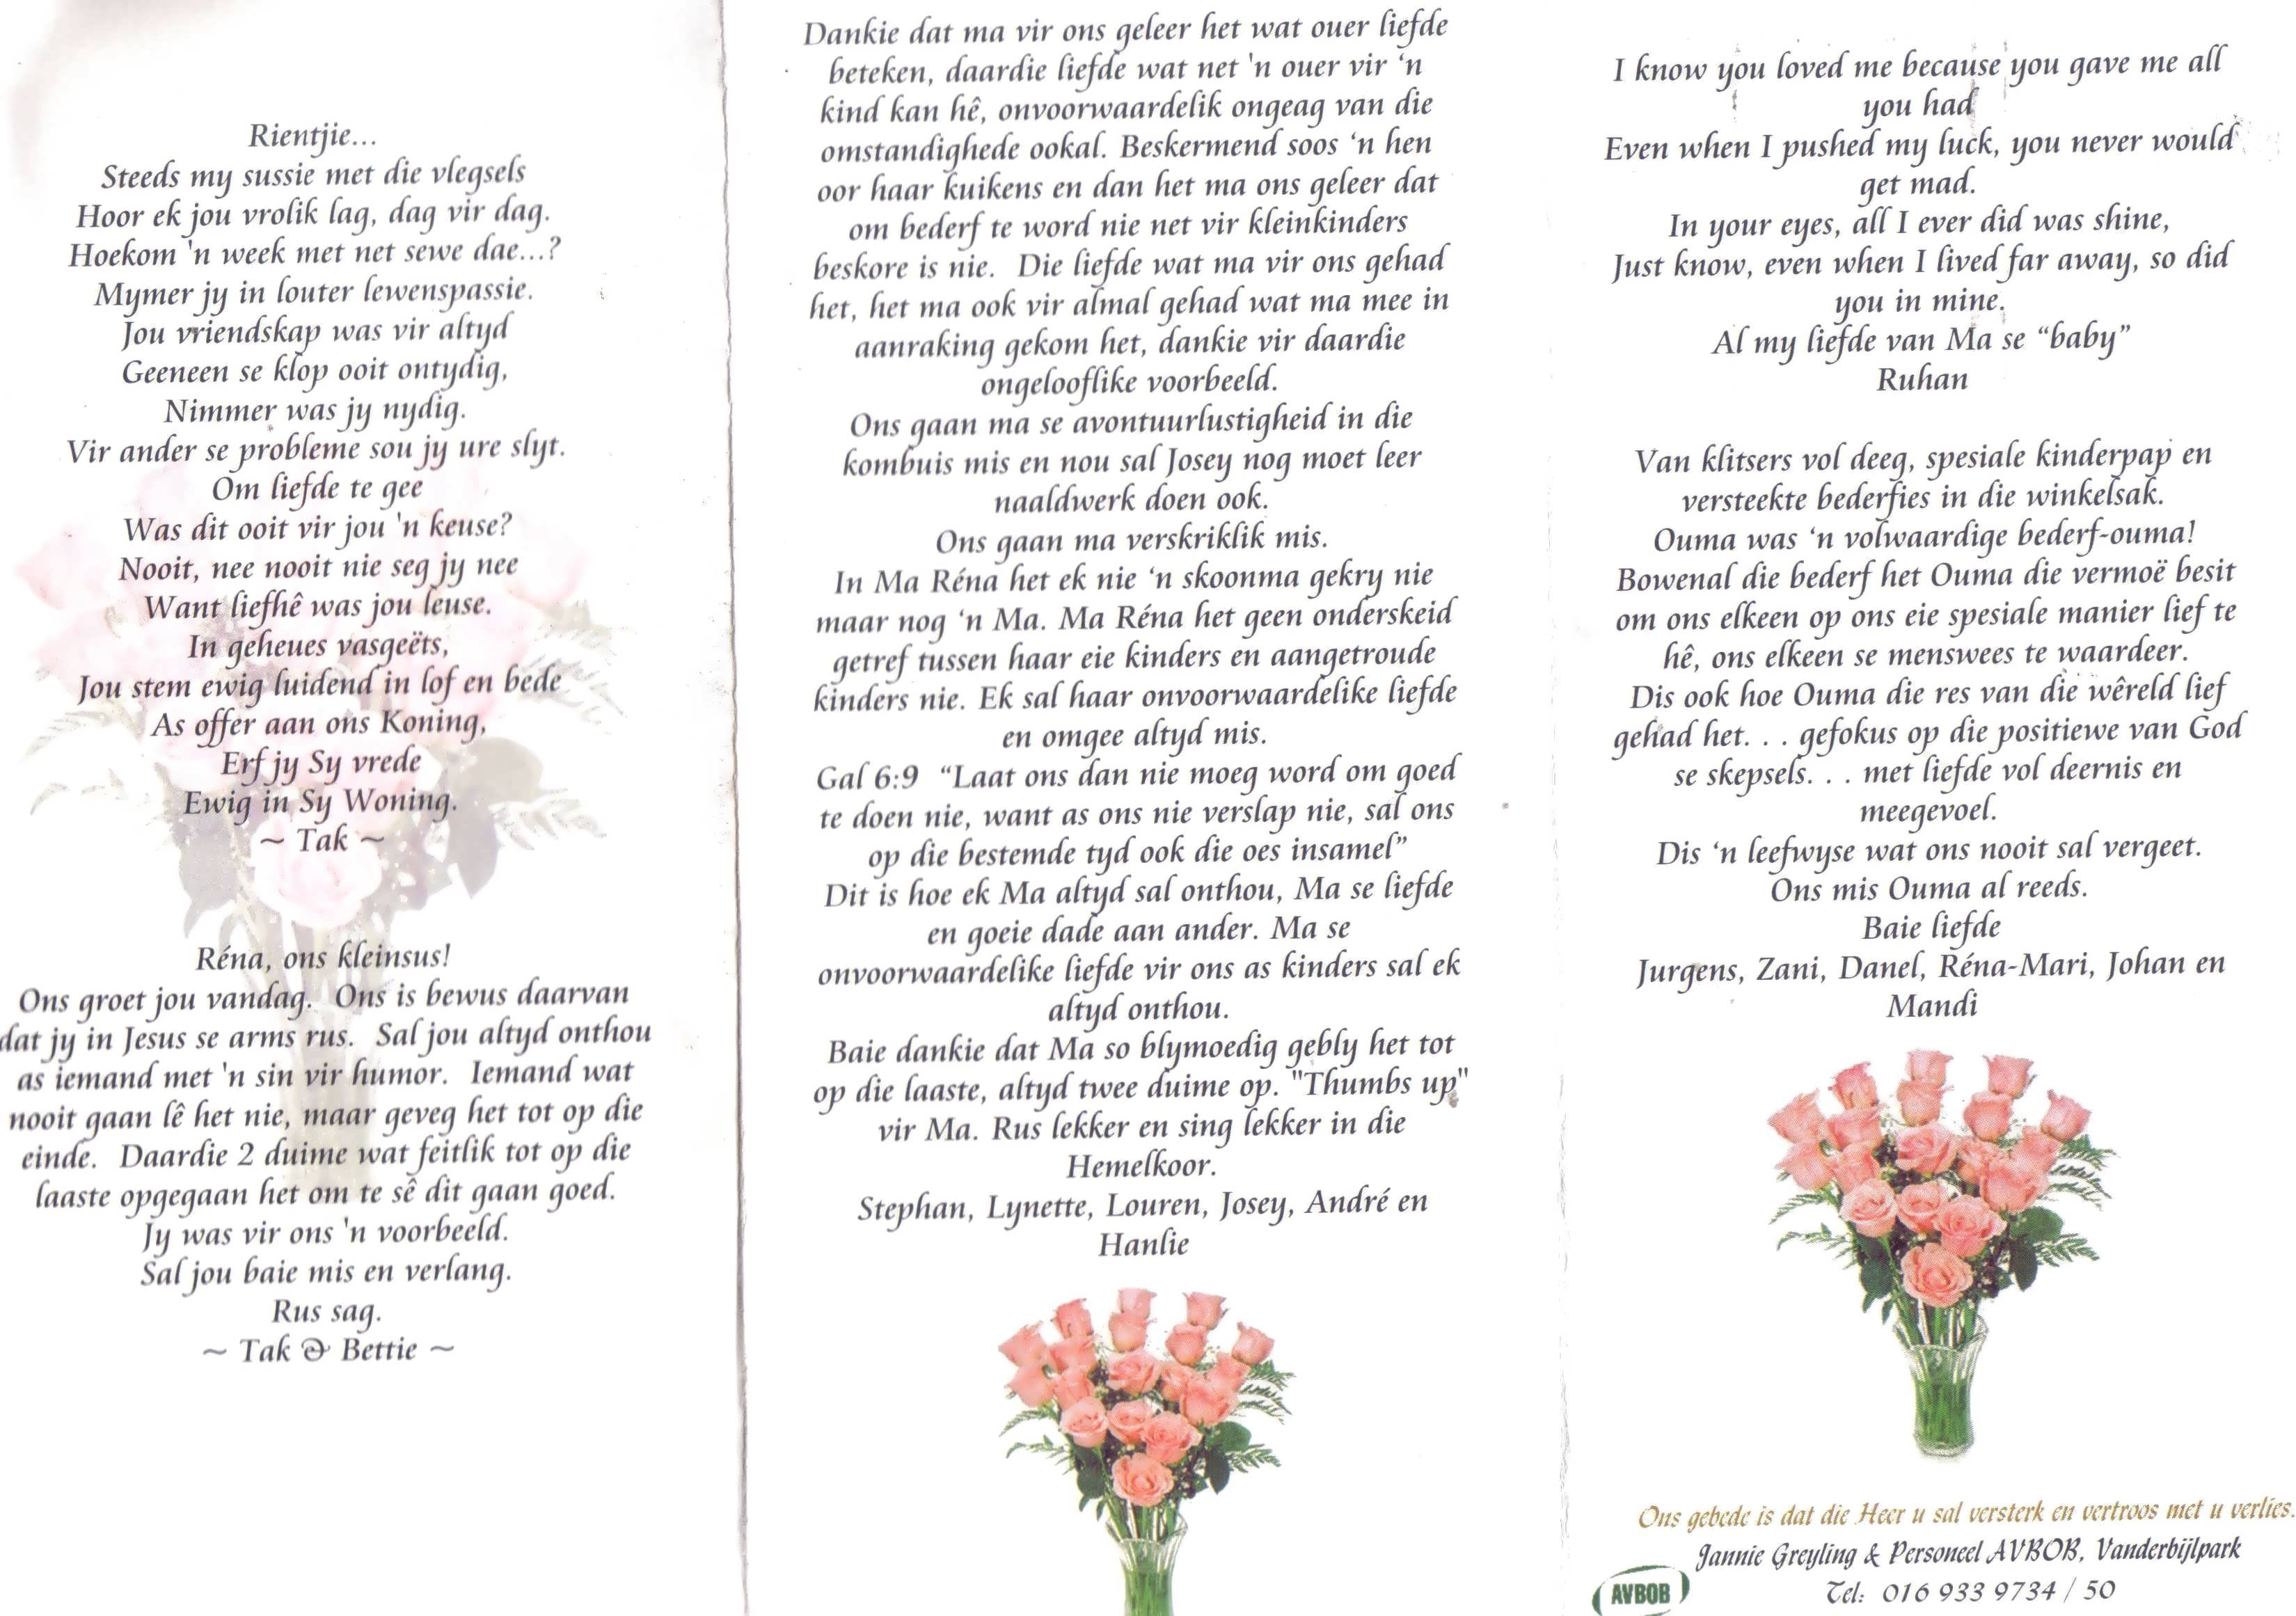 Rientjie...
Steeds my sussie met die vlegsels
Hoor ek jou vrolik lag, dag vir dag.
Hoekom 'n week met net sewe dae...?
Mymer jy in louter lewenspassie.
Jou vriendskap was vir altyd
Geeneen se klop ooit ontydig,
Nimmer was jy nydig.
Vir ander se probleme sou jy ure slyt.
Om liefde te gee
Was dit ooit vir jou 'n keuse?
Nooit, nee nooit nie seg jy nee
Want liefhê was jou leuse.
In geheues vasgeëts,
Jou stem ewig luidend in lof en bede
As offer aan ons Koning,
Erf jy Sy vrede
Ewig in Sy Woning.
~ Tak ~
Réna, ons kleinsus!
Ons groet jou vandag. Ons is bewus daarvan
dat jy in Jesus se arms rus. Sal jou altyd onthou
as iemand met 'n sin vir humor. Iemand wat
nooit gaan lê het nie, maar geveg het tot op die
einde. Daardie 2 duime wat feitlik tot op die
laaste opgegaan het om te sê dit gaan goed.
Jy was vir ons 'n voorbeeld.
Sal jou baie mis en verlang.
Rus sag.
~ Tak & Bettie ~
Dankie dat ma vir ons geleer het wat ouer liefde
beteken, daardie liefde wat net 'n ouer vir ‘n
kind kan hê, onvoorwaardelik ongeag van die
omstandighede ookal. Beskermend soos ‘n hen
oor haar kuikens en dan het ma ons geleer dat
om bederf te word nie net vir kleinkinders
beskore is nie. Die liefde wat ma vir ons gehad
het, het ma ook vir almal gehad wat ma mee in
aanraking gekom het, dankie vir daardie
ongelooflike voorbeeld.
Ons gaan ma se avontuurlustigheid in die
kombuis mis en nou sal Josey nog moet leer
naaldwerk doen ook.
Ons gaan ma verskriklik mis.
In Ma Réna het ek nie ‘n skoonma gekry nie
maar nog ‘n Ma. Ma Réna het geen onderskeid
getref tussen haar eie kinders en aangetroude
kinders nie. Ek sal haar onvoorwaardelike liefde
en omgee altyd mis.
Gal 6:9 “Laat ons dan nie moeg word om goed
te doen nie, want as ons nie verslap nie, sal ons
op die bestemde tyd ook die oes insamel”
Dit is hoe ek Ma altyd sal onthou, Ma se liefde
en goeie dade aan ander. Ma se
onvoorwaardelike liefde vir ons as kinders sal ek
altyd onthou.
Baie dankie dat Ma so blymoedig gebly het tot
op die laaste, altyd twee duime op. "Thumbs up"
vir Ma. Rus lekker en sing lekker in die
Hemelkoor.
Stephan, Lynette, Louren, Josey, André en
Hanlie
I know you loved me because you gave me all
you had
Even when I pushed my luck, you never would
get mad.
In your eyes, all I ever did was shine,
Just know, even when I lived far away, so did
you in mine.
Al my liefde van Ma se “baby”
Ruhan
Van klitsers vol deeg, spesiale kinderpap en
versteekte bederfies in die winkelsak.
Ouma was ‘n volwaardige bederf-ouma!
Bowenal die bederf het Ouma die vermoë besit
om ons elkeen op ons eie spesiale manier lief te
hê, ons elkeen se menswees te waardeer.
Dis ook hoe Ouma die res van die wêreld lief
gehad het. . . gefokus op die positiewe van God
se skepsels. . . met liefde vol deernis en
meegevoel.
Dis ‘n leefwyse wat ons nooit sal vergeet.
Ons mis Ouma al reeds.
Baie liefde
Jurgens, Zani, Danel, Réna-Mari, Johan en
Mandi
Ons gebede is dat die Heer u sal versterk en vertroos met u verlies.
Jannie Greyling & Personeel AVBOB, Vanderbijlpark
AVBOB
Tel: 016 933 9734 / 50